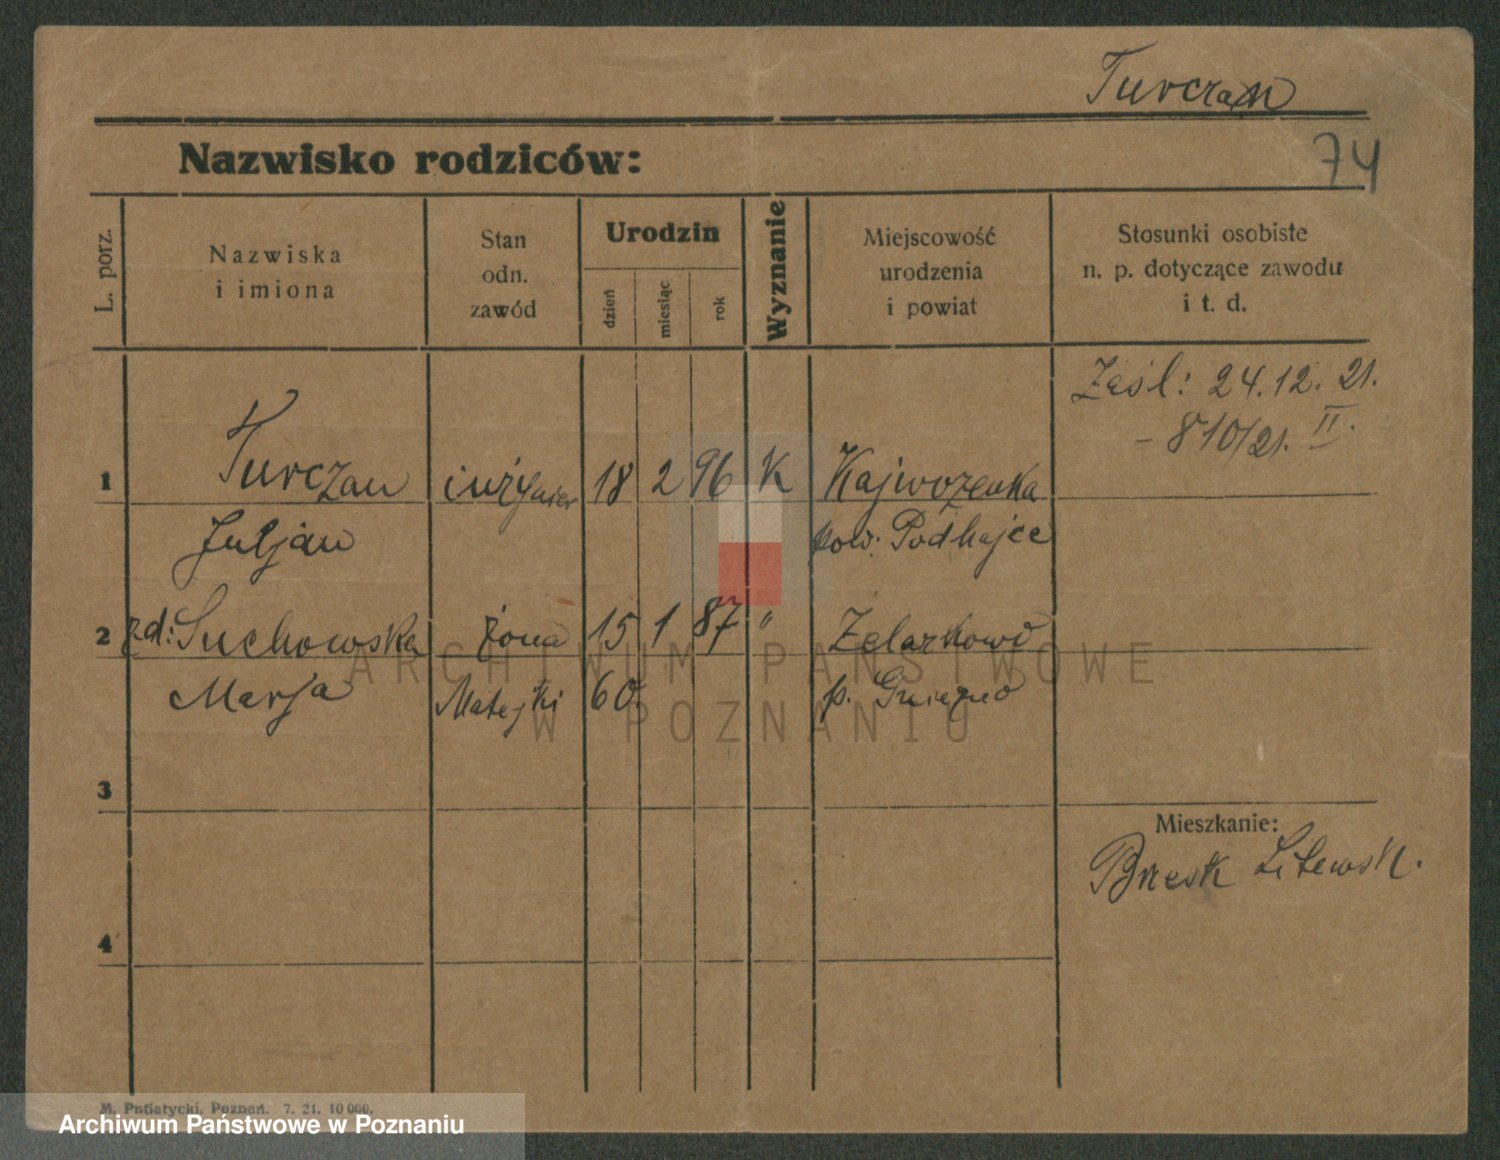 Turczan
74
Nazwisko rodziców:
L. porz.
Nazwiska
i imiona
Stan
odn.
zawód
Urodzin
dzień
miesiąc
rok
Wyznanie
Miejscowość
urodzenia
i powiat
Stosunki osobiste
n. p. dotyczące zawodu
i t. d.
Zaśl: 24.12.21.
- 810/21. II.
1 Turczan inżynier 18 2 96 K
Juljan pow. Podhajce
2 zd: Suchowska żona 15 1 87 " Żelazkowo
Marja Matejki 60. p. Gniezno
3
Mieszkanie:
Brześć Litewsk.
4
M. Putiatycki, Poznań. 7. 21. 10 000.
ARCHIWUM PAŃSTWOWE
W POZNANIU
Archiwum Państwowe w Poznaniu